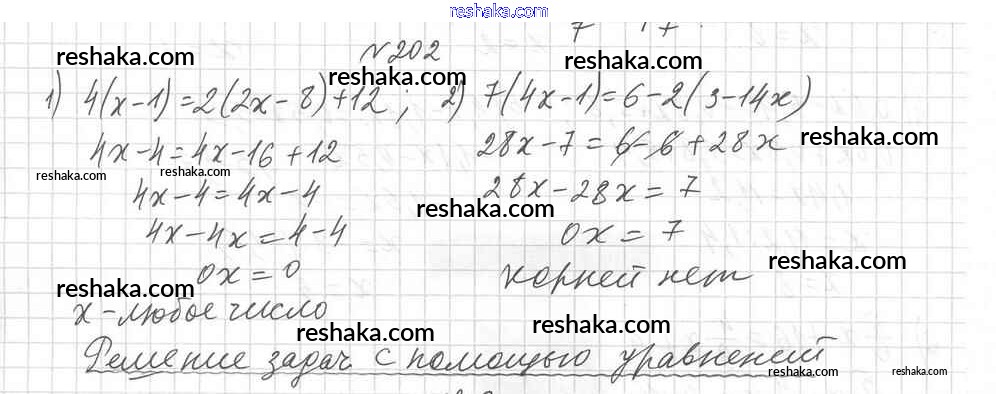 reshaka.com
7 17
reshaka.com №202 reshaka.com
reshaka.com
1) 4(x-1)=2(2x-8)+12; 2) 7(4x-1)=6-2(3-14x)
4x-4=4x-16+12 28x-7=6-6+28x reshaka.com
reshaka.com reshaka.com
4x-4=4x-4 28x-28x=7
reshaka.com
4x-4x=4-4 0x=7
0x=0 корней нет reshaka.com
reshaka.com
x-любое число
reshaka.com reshaka.com
Решение задач с помощью уравнений
reshaka.com reshaka.com
reshaka.com